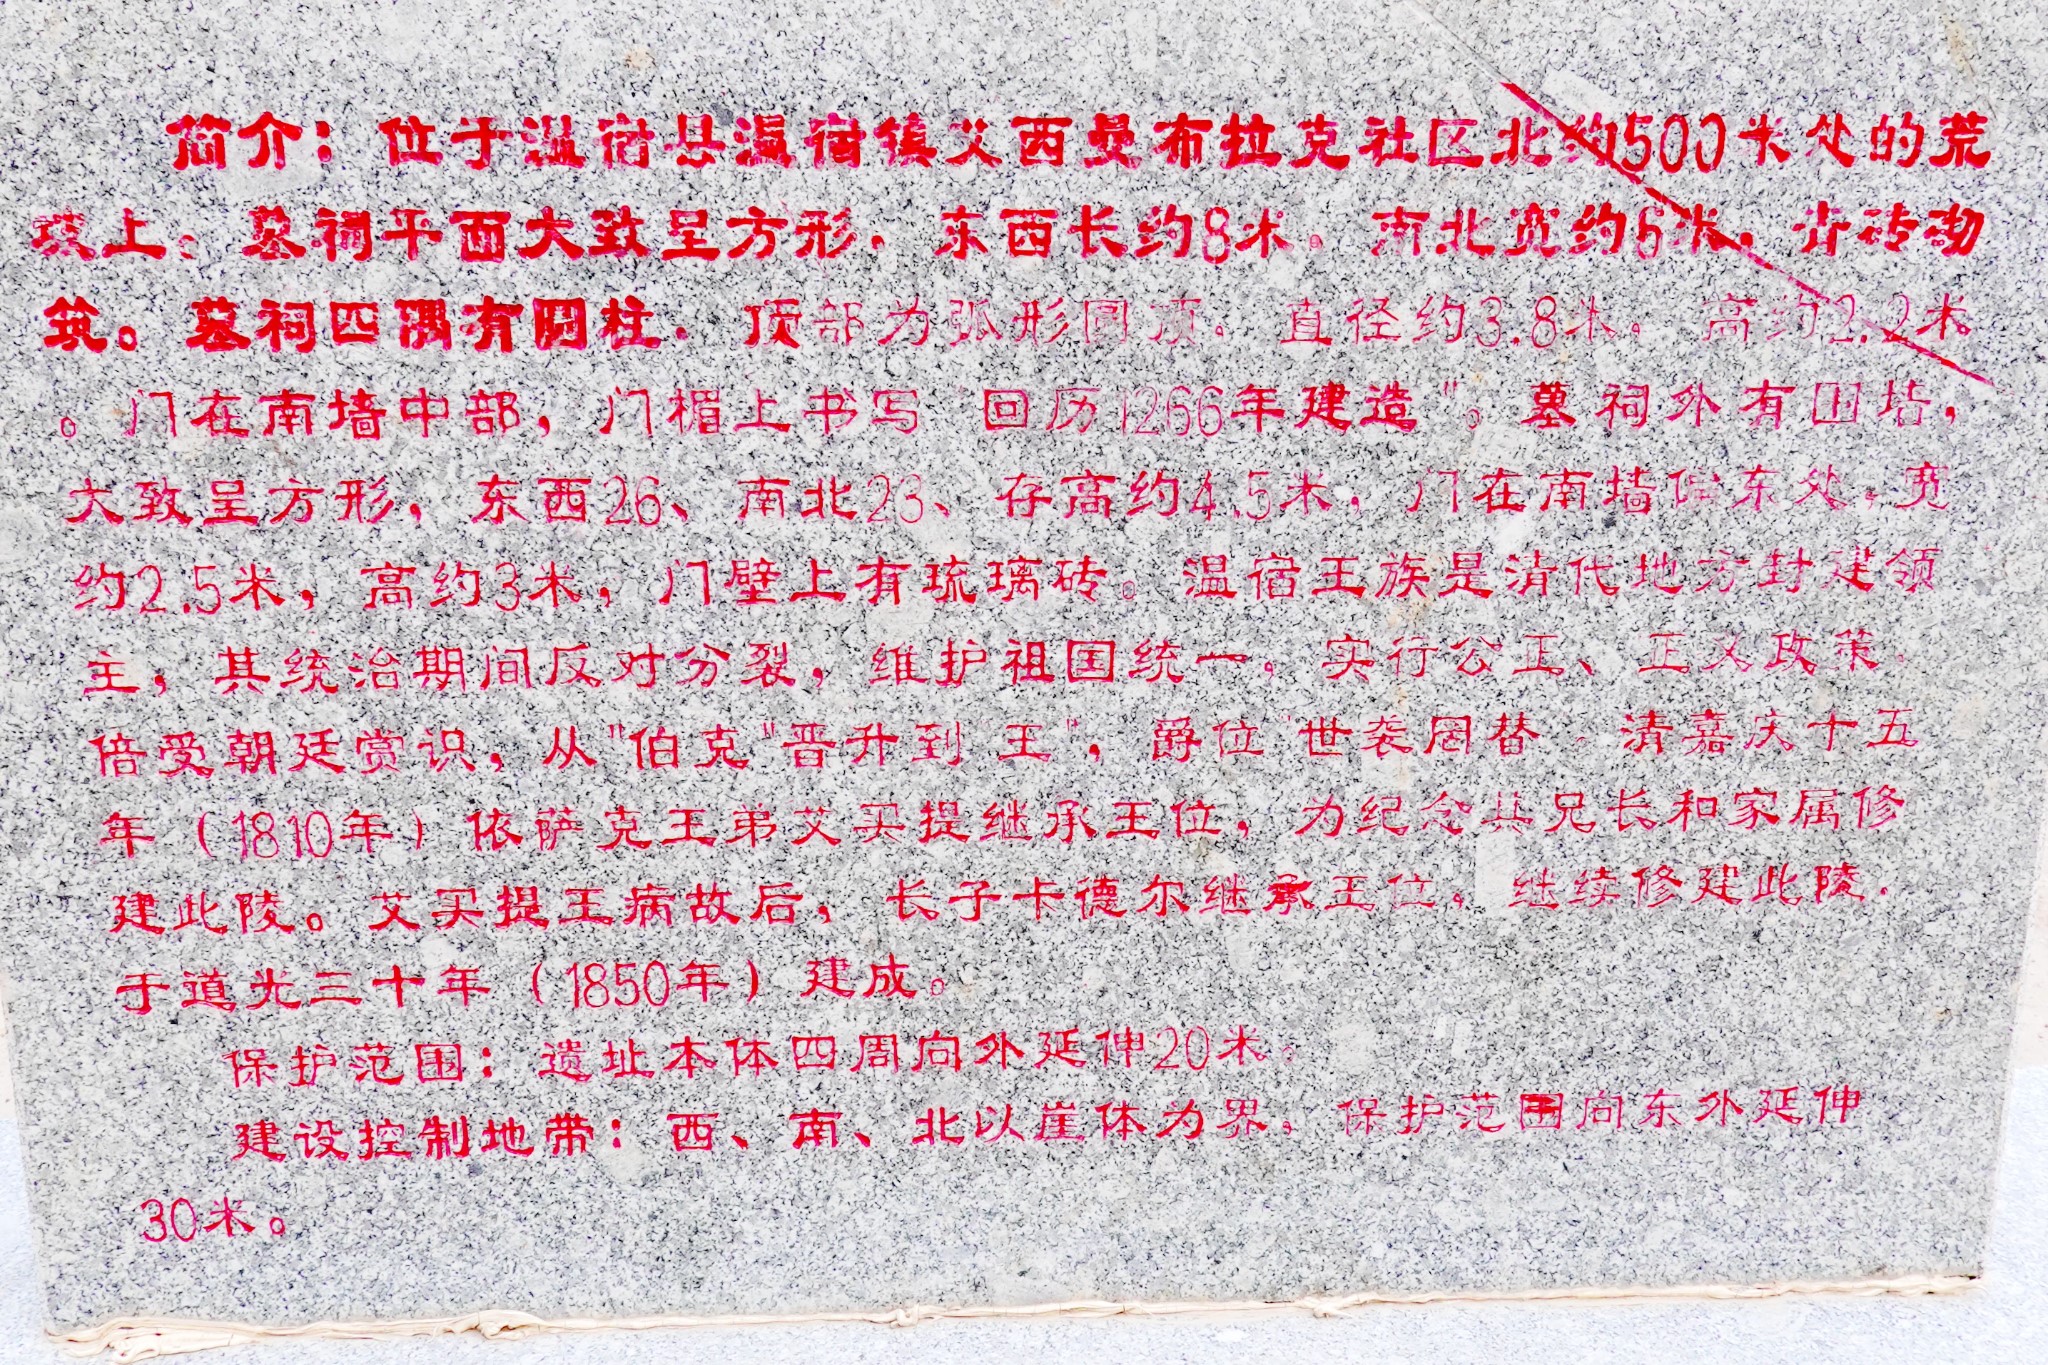 简介：位于温宿县温宿镇艾西曼布拉克社区北约1500米处的荒
坡上。墓祠平面大致呈方形，东西长约8米。南北宽约6米，青砖砌
筑。墓祠四隅有圆柱，顶部为弧形圆顶。直径约3.8米，高约2.2米
。门在南墙中部，门楣上书写“回历1266年建造”。墓祠外有围墙，
大致呈方形，东西26、南北23、存高约4.5米，门在南墙偏东处，宽
约2.5米，高约3米，门壁上有琉璃砖。温宿王族是清代地方封建领
主，其统治期间反对分裂，维护祖国统一。实行公正、正义政策，
倍受朝廷赏识，从"伯克"晋升到"王"，爵位"世袭罔替"。清嘉庆十五
年（1810年）依萨克王弟艾买提继承王位，为纪念其兄长和家属修
建此陵。艾买提王病故后，长子卡德尔继承王位，继续修建此陵，
于道光三十年（1850年）建成。
保护范围：遗址本体四周向外延伸20米。
建设控制地带：西、南、北以崖体为界，保护范围向东外延伸
30米。